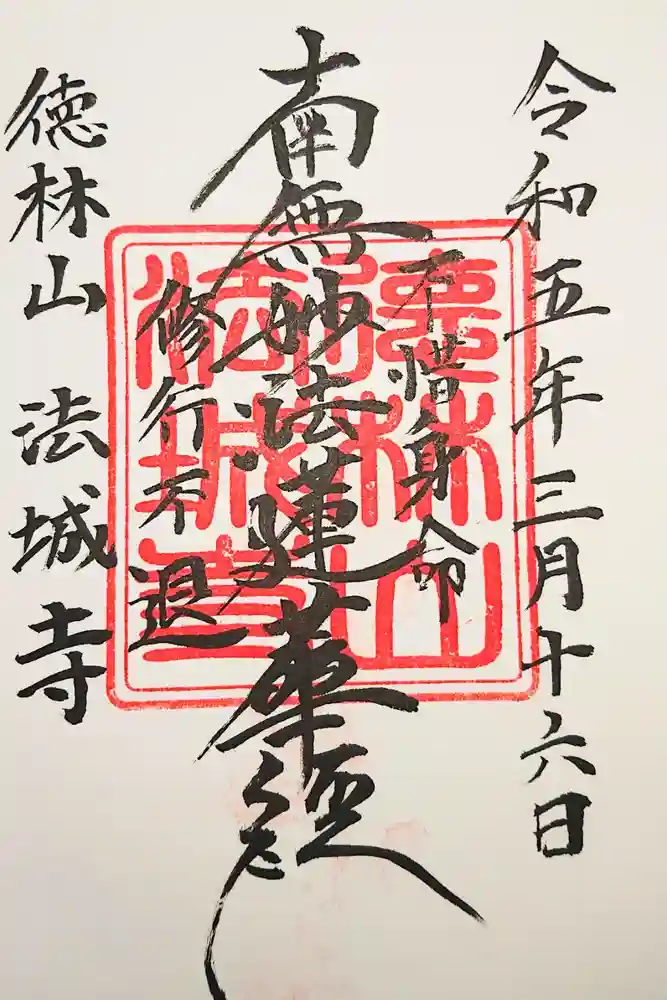 令和五年三月十六日
不惜身命
南無妙法蓮華経
修行不退
徳林山 法城寺
徳林山
法城寺